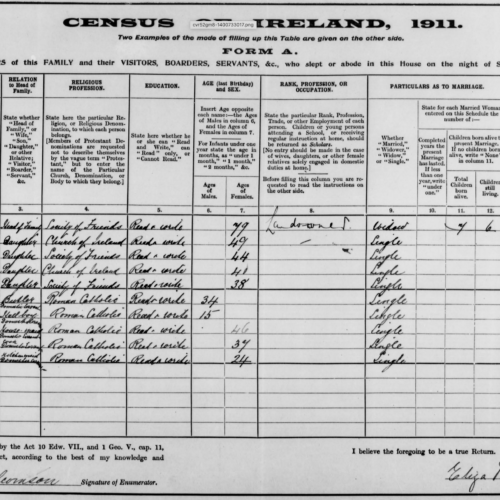 CENSUS OF IRELAND, 1911.
Two Examples of the mode of filling up this Table are given on the other side.
FORM A.
RS of this FAMILY and their VISITORS, BOARDERS, SERVANTS, &c., who slept or abode in this House on the night of S
RELATION to Head of Family.
RELIGIOUS PROFESSION.
EDUCATION.
AGE (last Birthday) and SEX.
RANK, PROFESSION, OR OCCUPATION.
PARTICULARS AS TO MARRIAGE.
State whether "Head of Family," or "Wife," "Son," "Daughter," or other Relative, "Visitor," "Boarder," "Servant," &c.
State here the particular Religion, or Religious Denomination, to which each person belongs.
[Members of Protestant Denominations are requested not to describe themselves by the vague term "Protestant," but to enter the name of the Particular Church, Denomination, or Body to which they belong.]
State here whether he or she can "Read and Write," can "Read" only, or "Cannot Read."
Insert Age opposite each name:—the Ages of Males in column 6, and the Ages of Females in column 7.
For Infants under one year state the age in months, as "under 1 month," "1 month," "2 months," &c.
Ages of Males.
Ages of Females.
State the particular Rank, Profession, Trade, or other Employment of each person. Children or young persons attending a School, or receiving regular instruction at home, should be returned as Scholars.
[No entry should be made in the case of wives, daughters, or other female relatives solely engaged in domestic duties at home.]
Before filling this column you are requested to read the instructions on the other side.
Whether "Married," "Widower," "Widow," or "Single."
State for each Married Woman entered on this Schedule the number of:—
Completed years the present Marriage has lasted. If less than one year, write "under one."
Children born alive to present Marriage. If no children born alive, write "None" in column 11.
Total Children born alive.
Children still living.
3. 4. 5. 6. 7. 8. 9. 10. 11. 12.
Head of Family Society of Friends Read & write 79 Landowner Widow 7 6
Daughter Church of Ireland Read & write 49 Single
Daughter Society of Friends Read & write 44 Single
Daughter Church of Ireland Read & write 41 Single
Daughter Society of Friends Read & write 38 Single
Butler Roman Catholic Read & write 34 Single
Roman Catholic Read & write 15 Single
Roman Catholic Read & write 46 Single
Roman Catholic Read & write 37 Single
Roman Catholic Read & write 24 Single
by the Act 10 Edw. VII., and 1 Geo. V., cap. 11,
ct, according to the best of my knowledge and
I believe the foregoing to be a true Return.
Signature of Enumerator.
Eliza